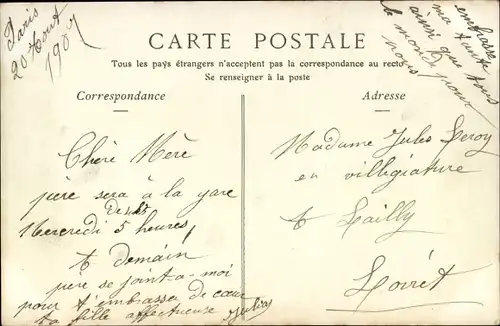 Paris
20 Aout
1907
embrasse
ma tante
ainsi que tous
le monde pour
nous
CARTE POSTALE
Tous les pays étrangers n'acceptent pas la correspondance au recto
Se renseigner à la poste
Correspondance
Adresse
Chère Mère
père sera à la gare
De
Mercredi 5 heures
demain
père se joint-a-moi
pour t'embrasser de cœur
ta fille affectueuse
Madame Jules Leroy
en villégiature
Lailly
Loiret